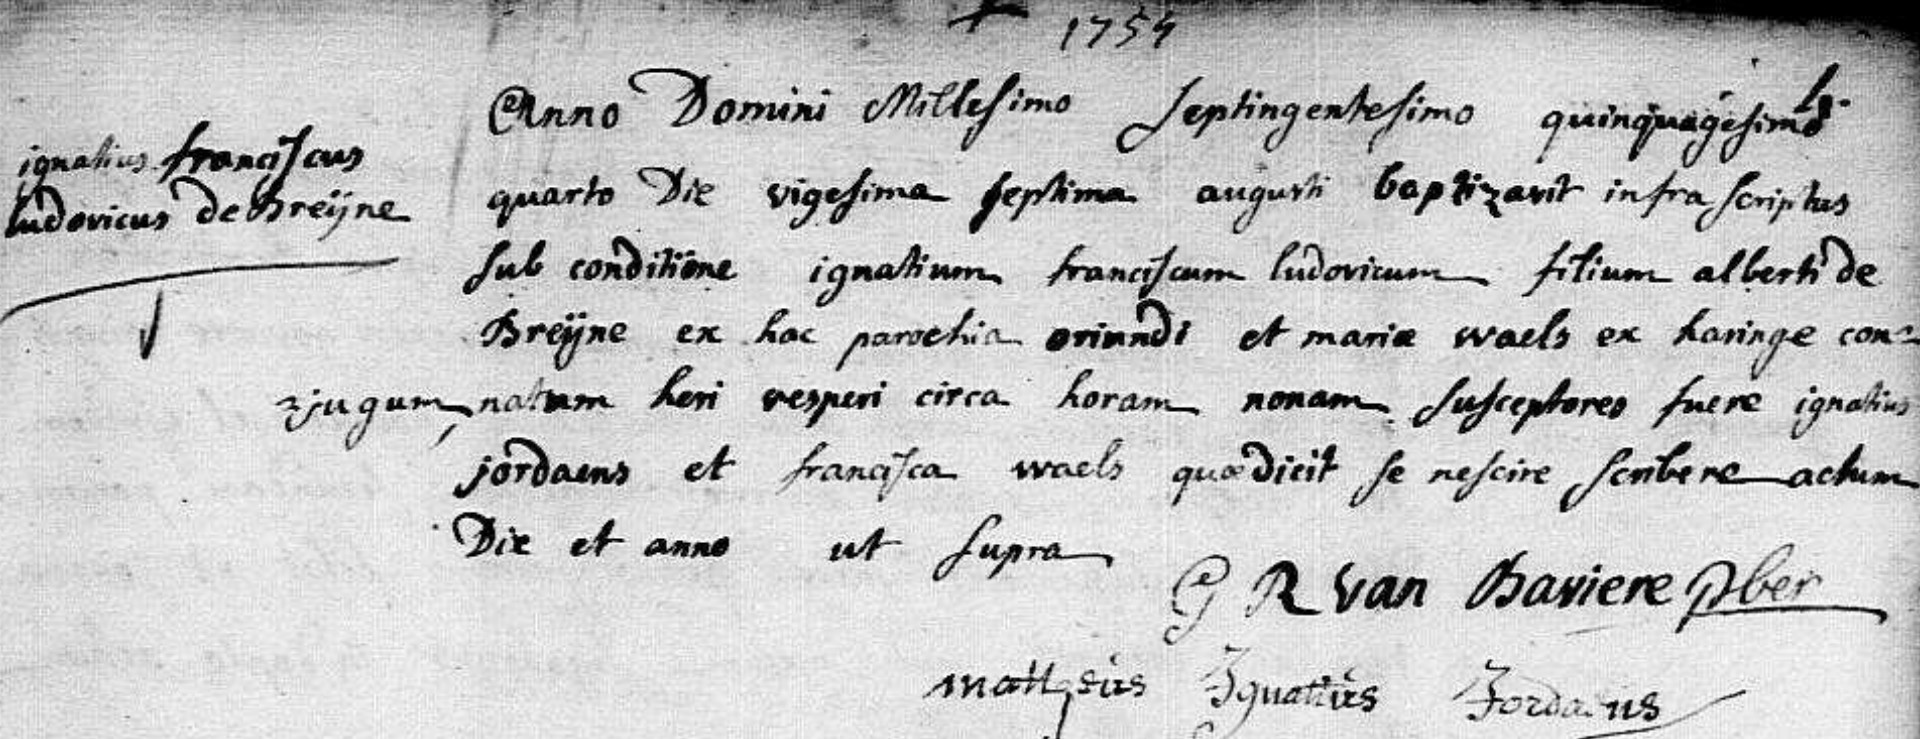 1754
ignatius franciscus
ludovicus de Breÿne
Anno Domini Millesimo septingentesimo quinquagesimo
quarto Die vigesima septima augusti baptizavit infrascriptus
sub conditione ignatium franciscum ludovicum filium alberti de
Breÿne ex hac parochia oriundi et mariæ waels ex haringe con=
=jugum, natum heri vesperi circa horam nonam susceptores fuere ignatius
jordaens et francisca waels quæ dicit se nescire scribere actum
Die et anno ut supra
G R van Baviere pber
Ignatius Jordaens